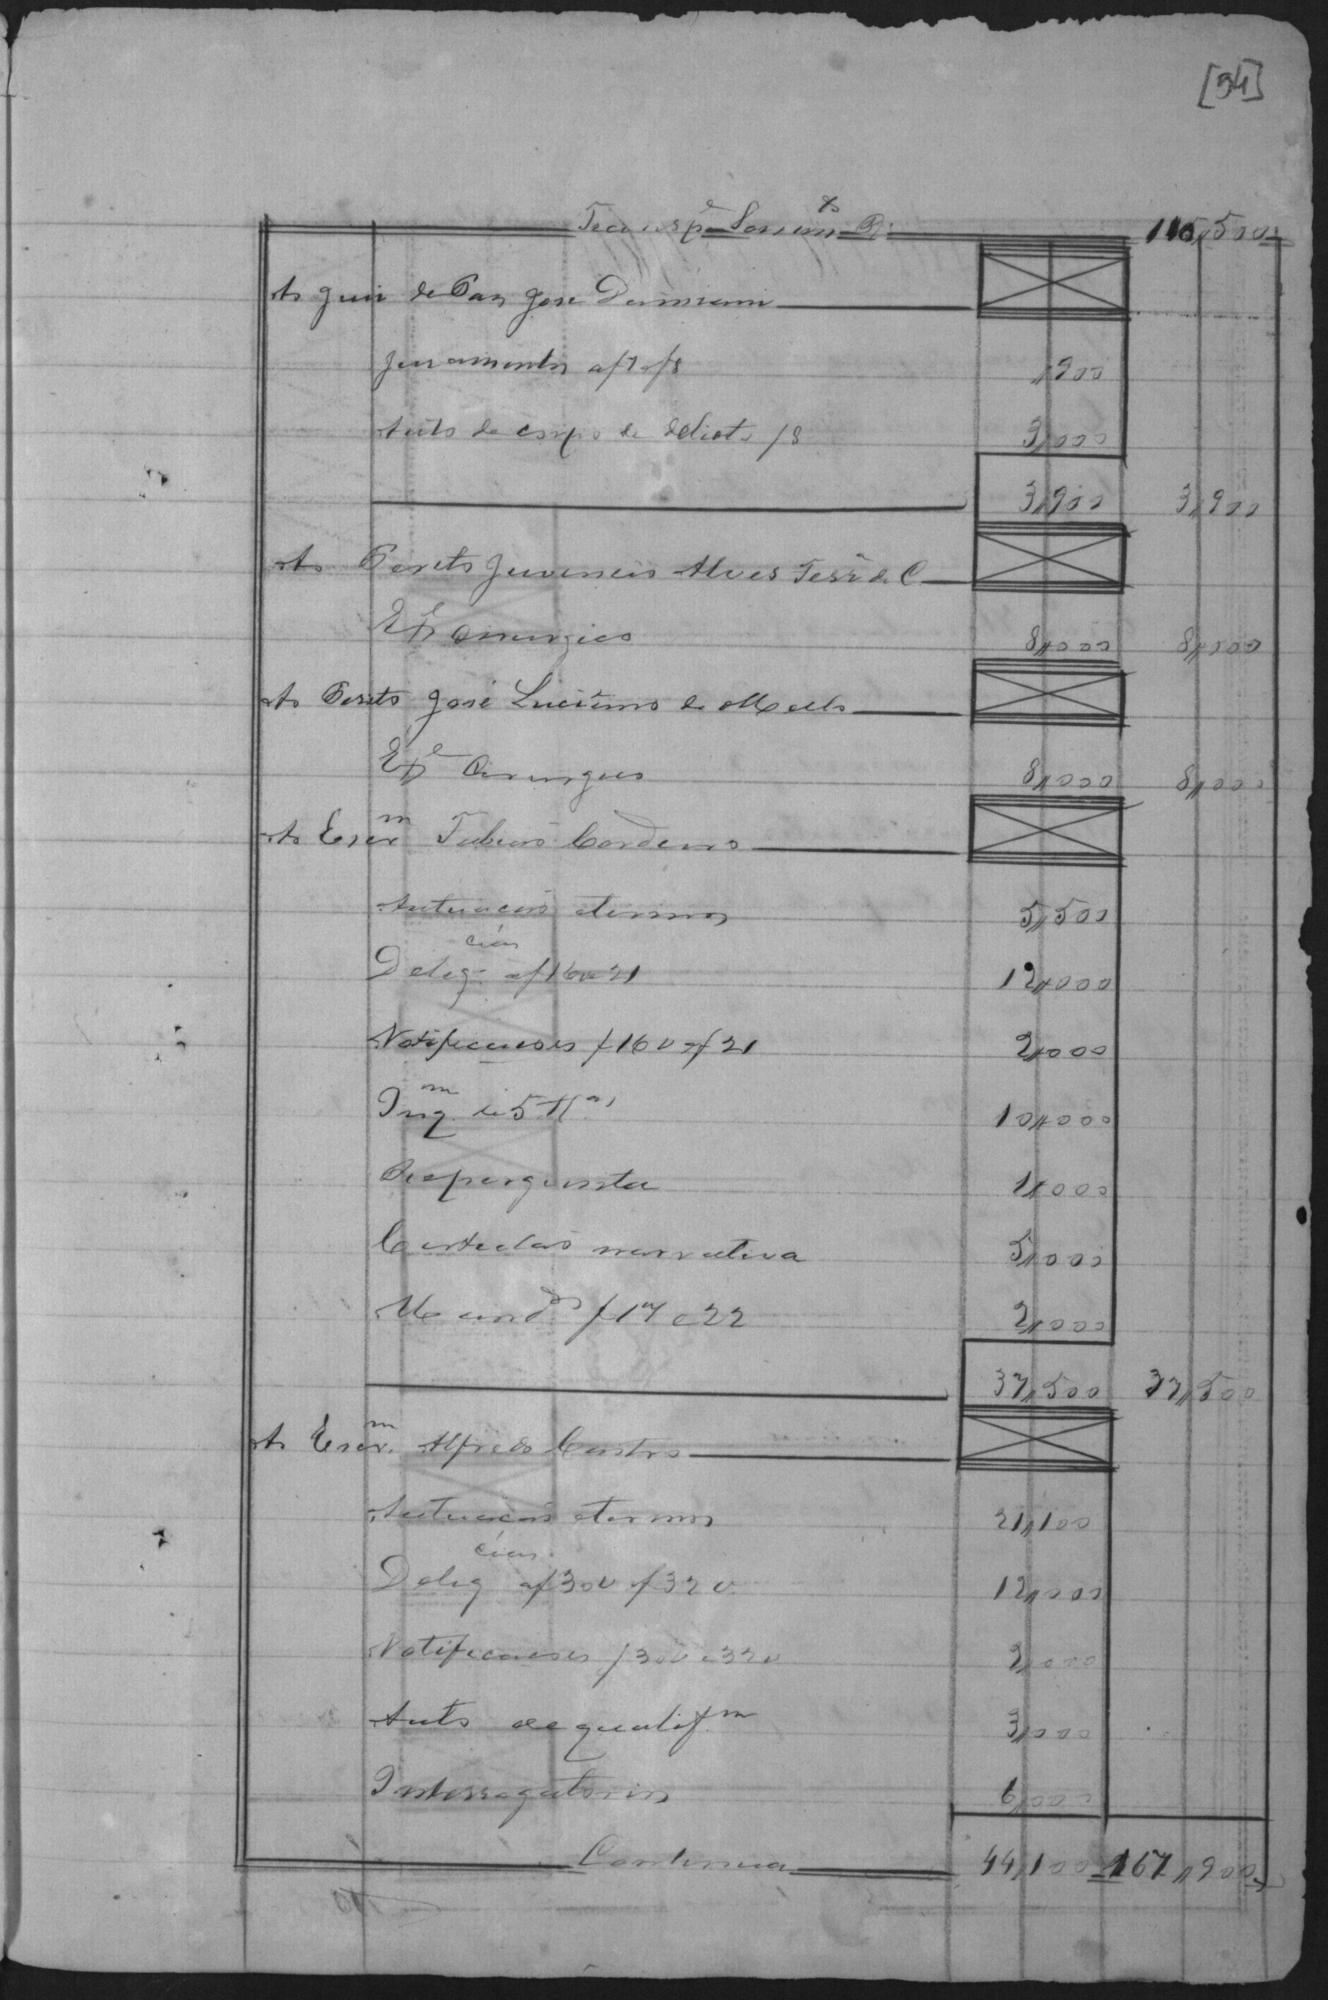 [34]
Transp.e Somma R: 110,500
Ao Juis de Paz José Damiani
Juramentos af 7 of 8 ,900
Auto de corpo de delicto f 8 3,000
3,900 3,900
Ao Perito Juvencio Alves Ferr.a de C
Ex.e cirurgico 8,000 8,000
Ao Perito José Luciano de Mello
Ex.e Cirurgico 8,000 8,000
Ao Escr.m Tubias Cordeiro
Autuacão etermos 5,500
Delig.cias af 16 v e 21 12,000
Notificacoes f 16 v ef 21 2,000
Inq.m de 5 tt.as 10,000
Repergunta 1,000
Certidão narrativa 5,000
Mand.os f 17 e 22 2,000
37,500 37,500
Ao Escr.m Alfredo Castro
Autuacão etermos 21,100
Delig.cias af 30 v f 32 v. 12,000
Notificacoes f 30 v e 32 v 2,000
Auto de qualif.m 3,000
Interrogatorios 6,000
Continua 44,100 167,900